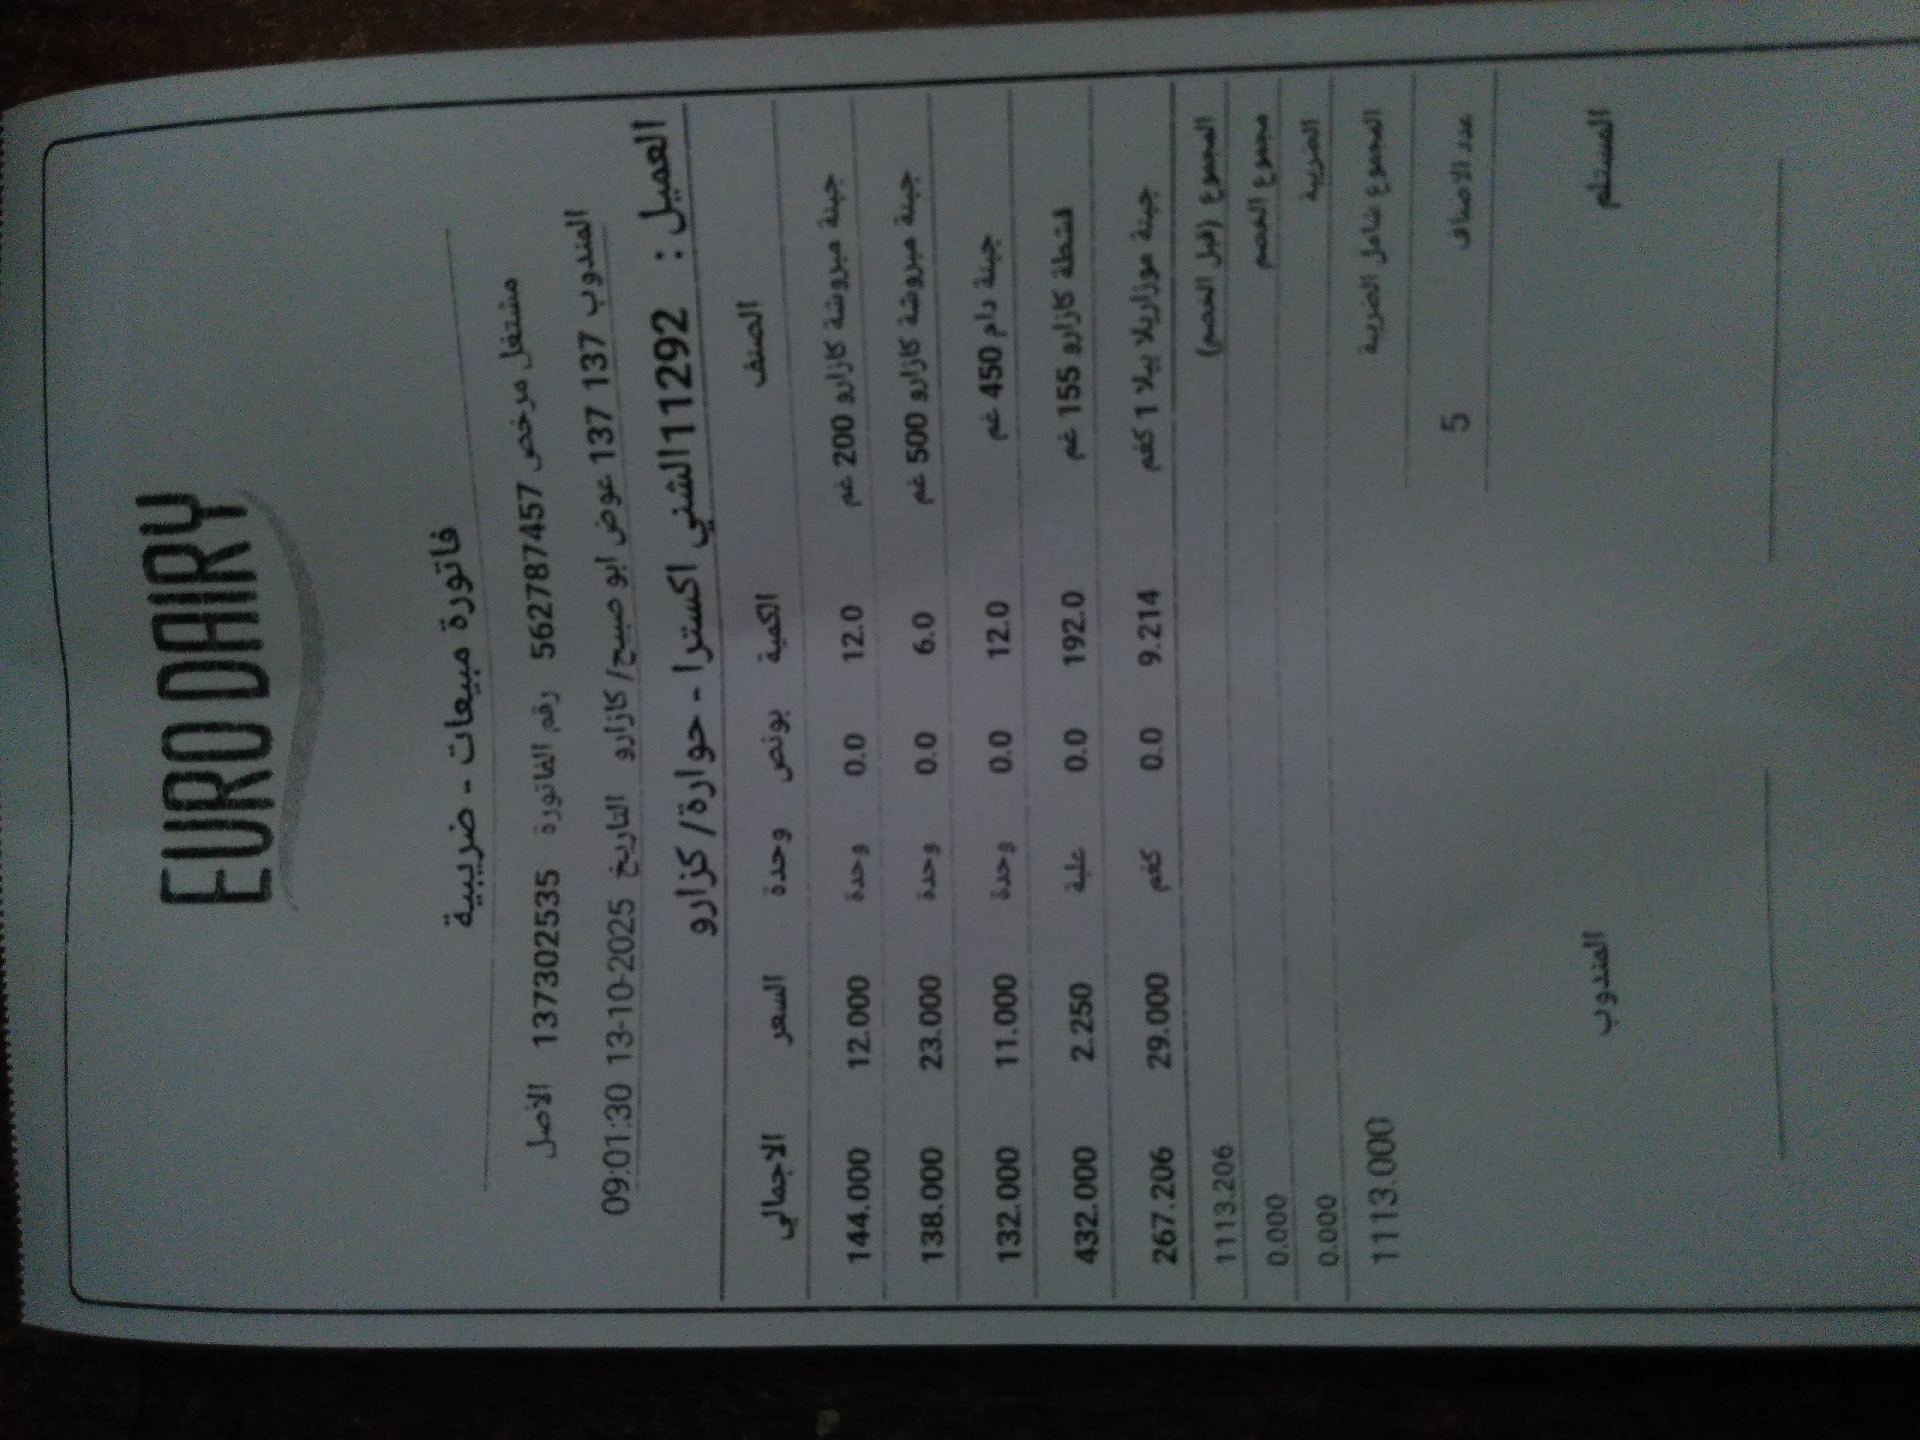 EURO DAIRY
فاتورة مبيعات - ضريبية
مشتغل مرخص 562787457 رقم الفاتورة 137302535 الأصل
المندوب 137 137 137 عوض ابو صبيح/كازارو التاريخ 13-10-2025 09:01:30
العميل : 11292الشني اكسترا - حوارة/كزارو
الصنف الكمية بونص وحدة السعر الاجمالي
جبنة مبروشة كازارو 200 غم 12.0 0.0 وحدة 12.000 144.000
جبنة مبروشة كازارو 500 غم 6.0 0.0 وحدة 23.000 138.000
جبنة دام 450 غم 12.0 0.0 وحدة 11.000 132.000
قشطة كازارو 155 غم 192.0 0.0 علبة 2.250 432.000
جبنة موزاريلا بيلا 1 كغم 9.214 0.0 كغم 29.000 267.206
المجموع (قبل الخصم) 1113.206
مجموع الخصم 0.000
الضريبة 0.000
المجموع شامل الضريبة 1113.000
عدد الاصناف 5
المستلم المندوب